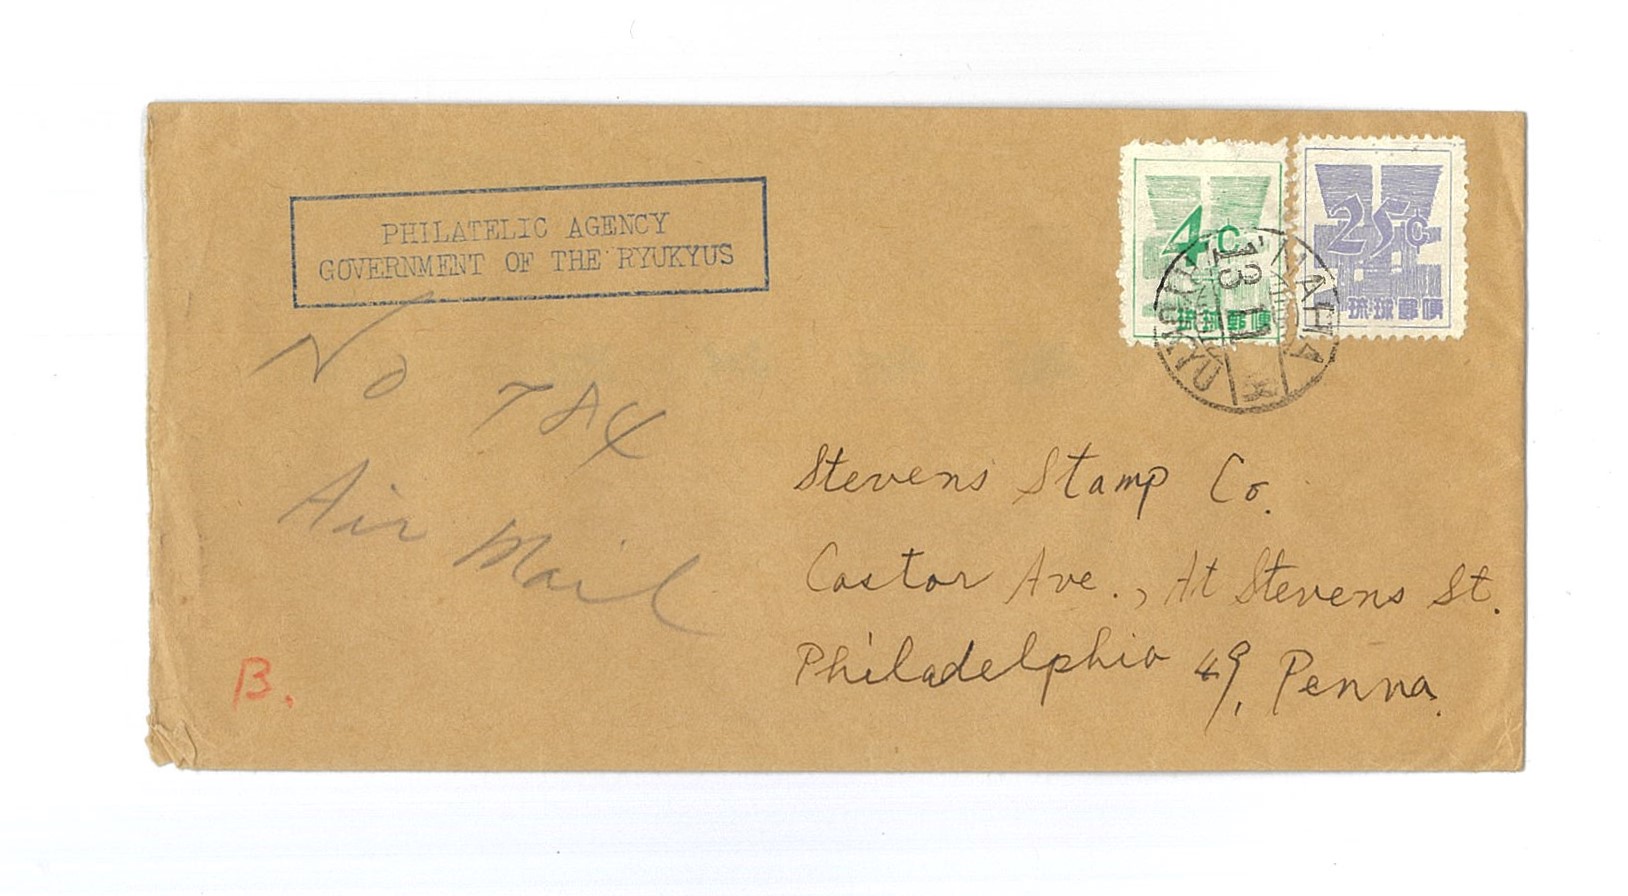 PHILATELIC AGENCY
GOVERNMENT OF THE RYUKYUS
4¢
25¢
琉球郵便
琉球郵便
NAHA
RYUKYU
No TAX
Air Mail
Stevens Stamp Co.
Castor Ave., At Stevens St.
Philadelphia 49, Penna.
B.